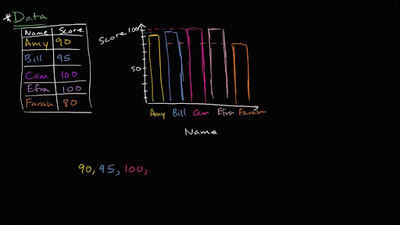 * Data
Name Score
Amy 90
Bill 95
Cam 100
Efra 100
Farah 80
Score
100
50
Amy Bill Cam Efra Farah
Name
90, 95, 100,